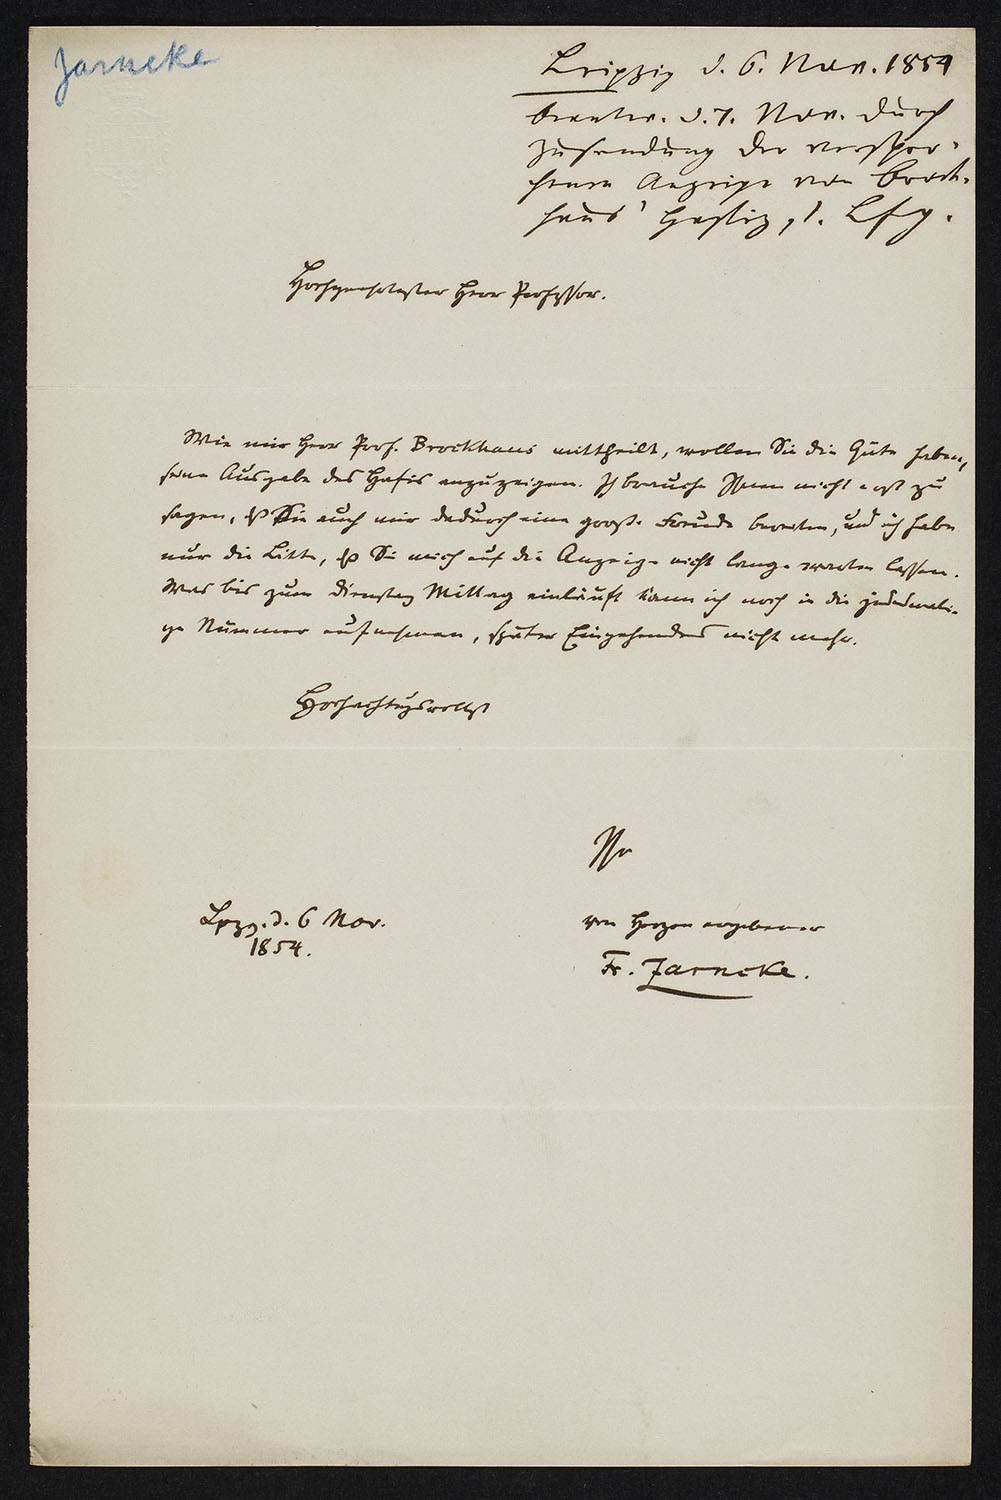 Zarncke
Leipzig d. 6. Nov. 1854
beantw. d. 7. Nov. durch
Zusendung der verspro-
chenen Anzeige von Brock-
haus' Hafiz, 1. Lfg.
Hochgeehrtester Herr Professor.
Wie mir Herr Prof. Brockhaus mittheilt, wollen Sie die Güte haben,
seine Ausgabe des Hafis anzuzeigen. Ich brauche Ihnen nicht erst zu
sagen, dß Sie auch mir dadurch eine große Freude bereiten, und ich habe
nur die Bitte, dß Sie mich auf die Anzeige nicht lange warten lassen.
Was bis zum Dienstag Mittag einläuft kann ich noch in die jedesmali-
ge Nummer aufnehmen, später Eingehendes nicht mehr.
Hochachtungsvollst
Ihr
Lpzg. d. 6 Nov.
1854.
von Herzen ergebener
Fr. Zarncke.